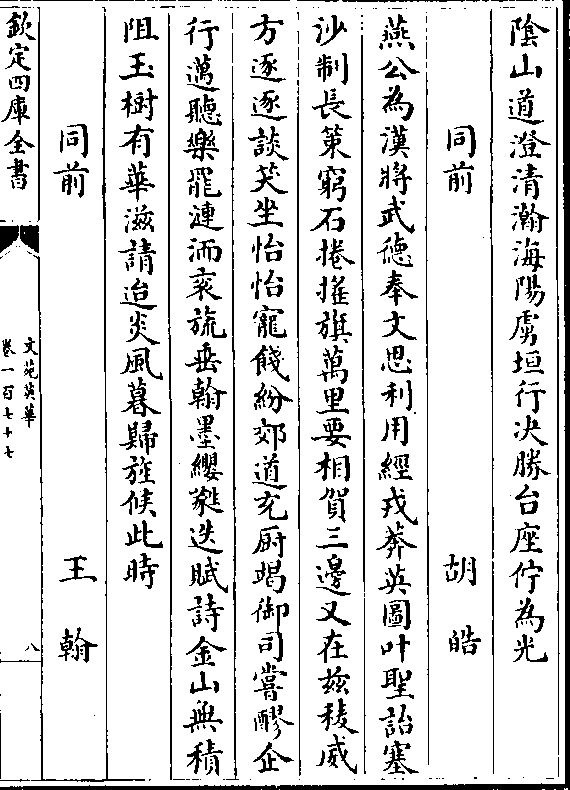 陰山道澄清瀚海陽虜垣行决勝台座佇為光
同前 胡皓
燕公為漢將武德奉文思利用經戎莽英圖叶聖詒塞
沙制長策窮石捲摧旗萬里要相賀三邊又在兹稜威
方逐逐談笑坐怡怡寵餞紛郊道充厨竭御司嘗醪企
行邁聽樂罷漣洏衮旒垂翰墨纓蕤迭賦詩金山無積
阻玉樹有華滋請迨炎風暮歸旌候此時
同前 王翰
欽定四庫全書
文苑英華
卷一百七十七
八